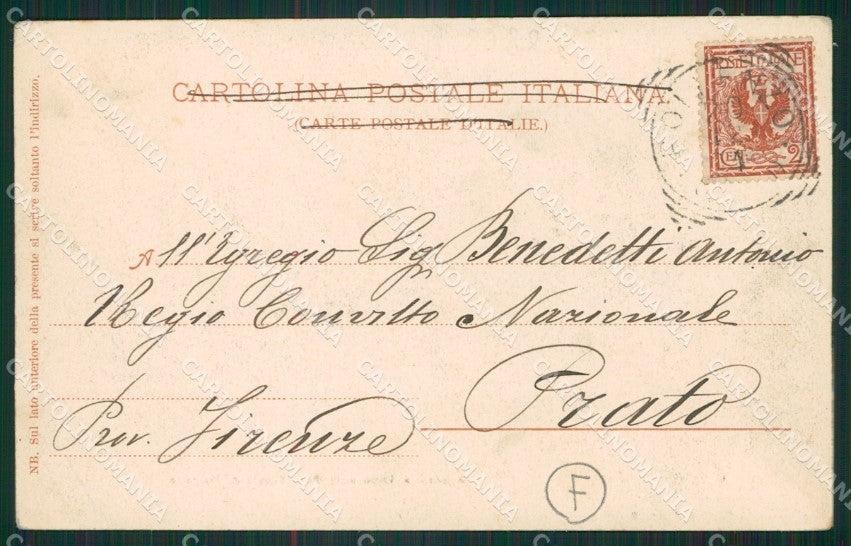 CARTOLINA POSTALE ITALIANA
(CARTE POSTALE D'ITALIE.)
All'Egregio Sig Benedetti Antonio
Regio Convitto Nazionale
Prato
Prov. Firenze
F
NB. Sul lato anteriore della presente si scrive soltanto l'indirizzo.
POSTE ITALIANE
CENT. 2
CARTOLINOMANIA